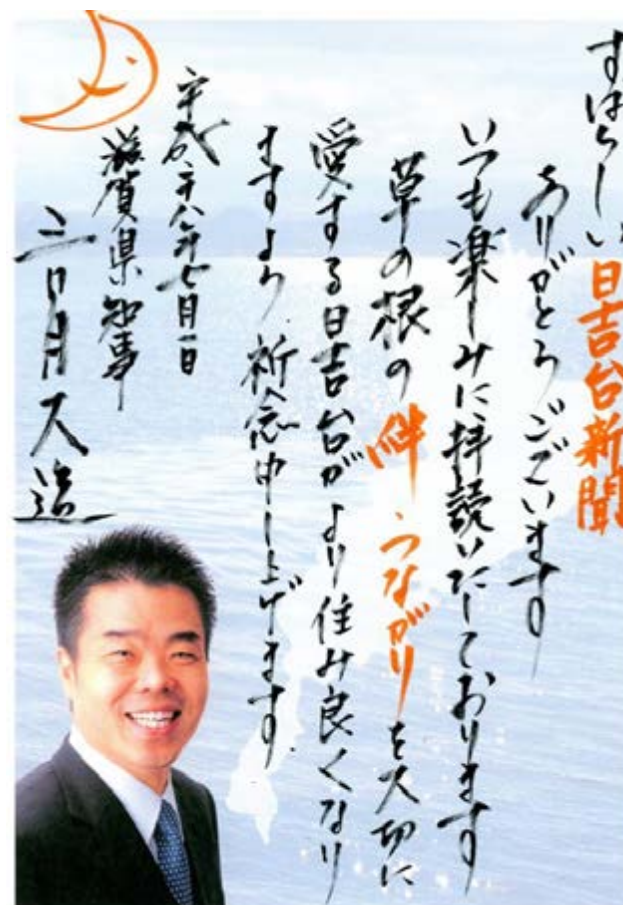 すばらしい日吉台新聞
ありがとうございます
いつも楽しみに拝読いたしております
草の根の絆、つながりを大切に
愛する日吉台がより住み良くなり
ますよう祈念申し上げます。
平成二十八年七月一日
滋賀県知事
三日月大造